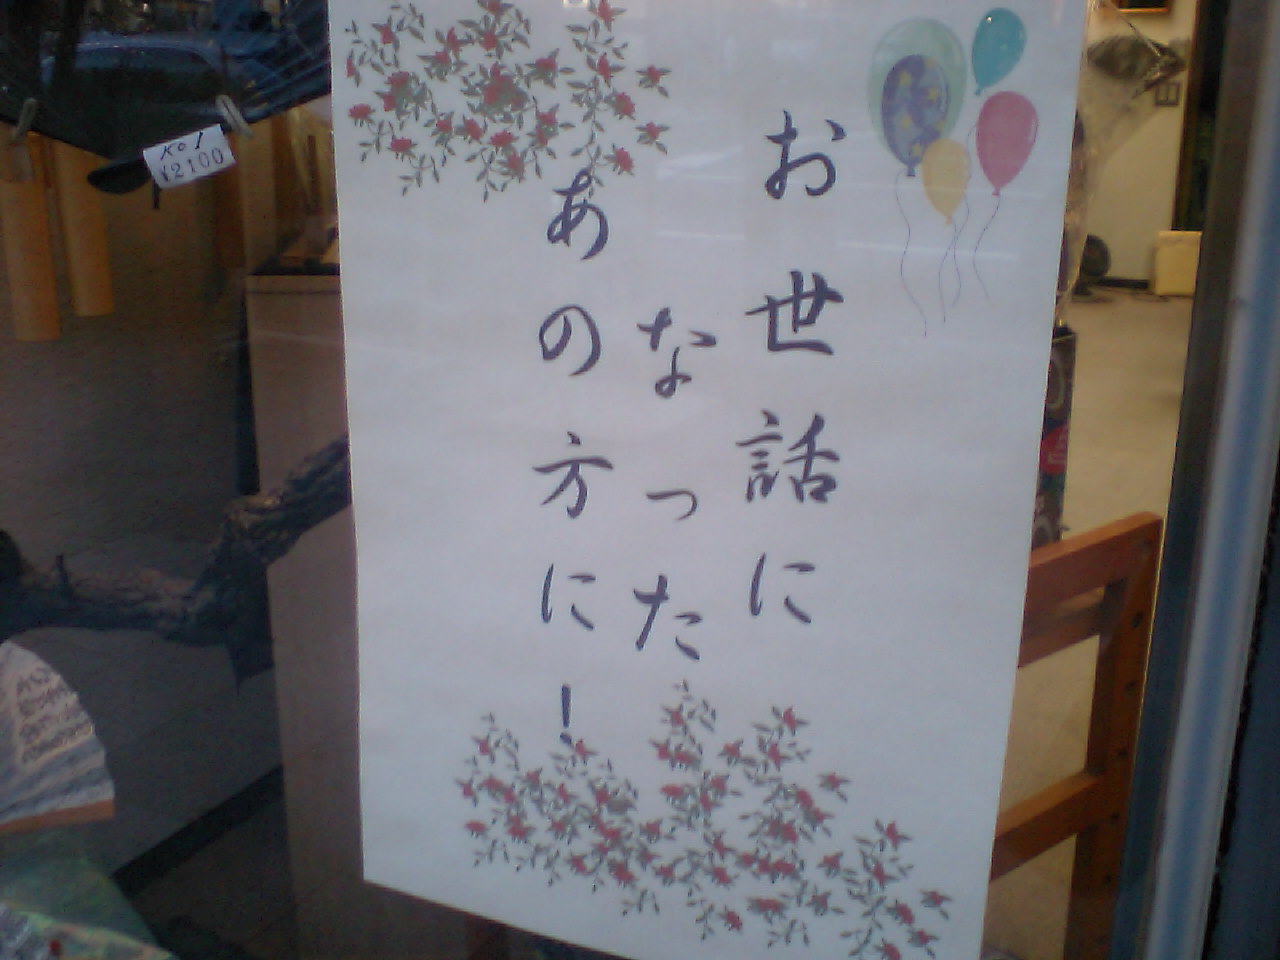 お世話に
なった
あの方に!
No 1
¥2100